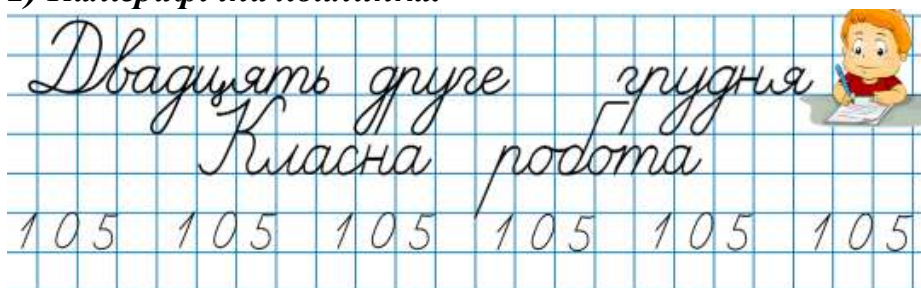 2) Каліграфічна хвилинка.
Двадцять друге грудня
Класна робота
105 105 105 105 105 105